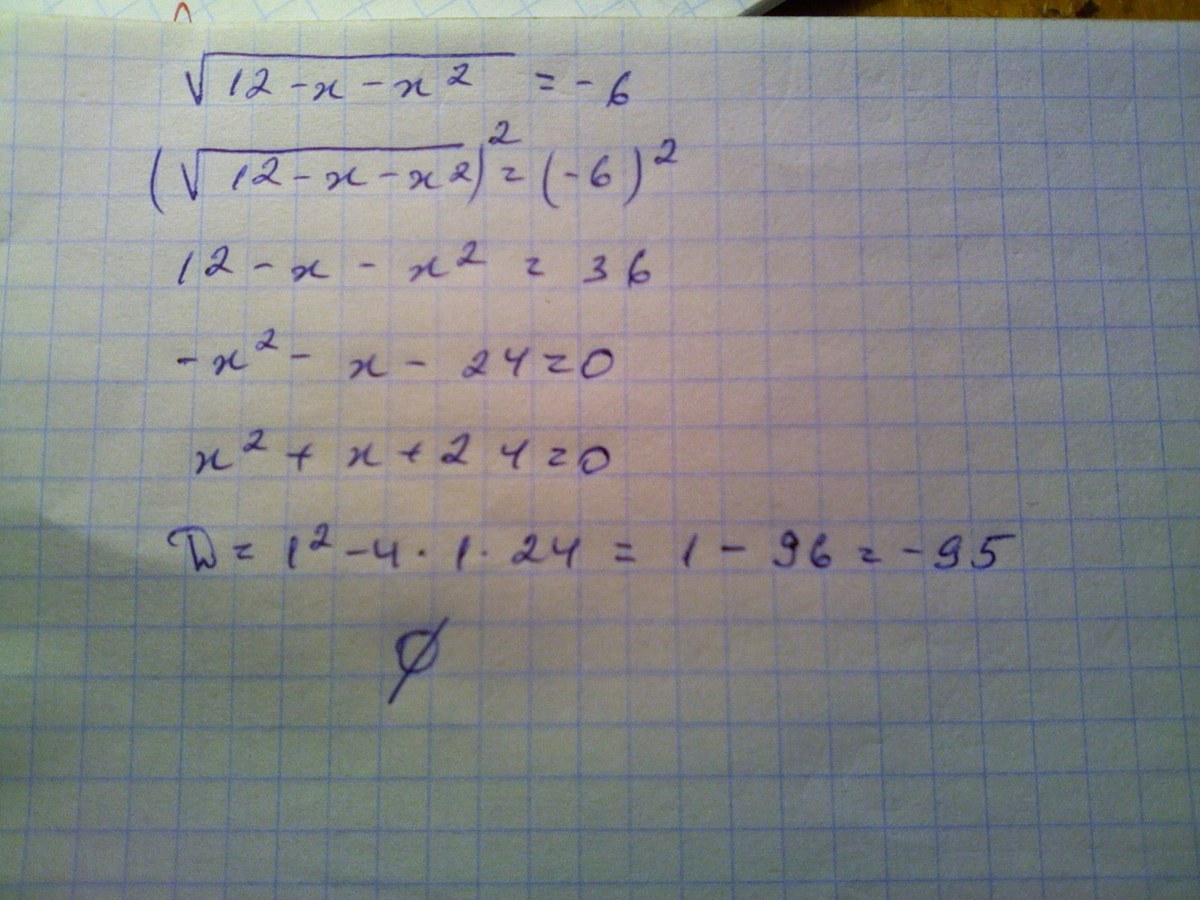 √(12 - x - x²) = -6
(√(12 - x - x²))² = (-6)²
12 - x - x² = 36
-x² - x - 24 = 0
x² + x + 24 = 0
D = 1² - 4 · 1 · 24 = 1 - 96 = -95
∅